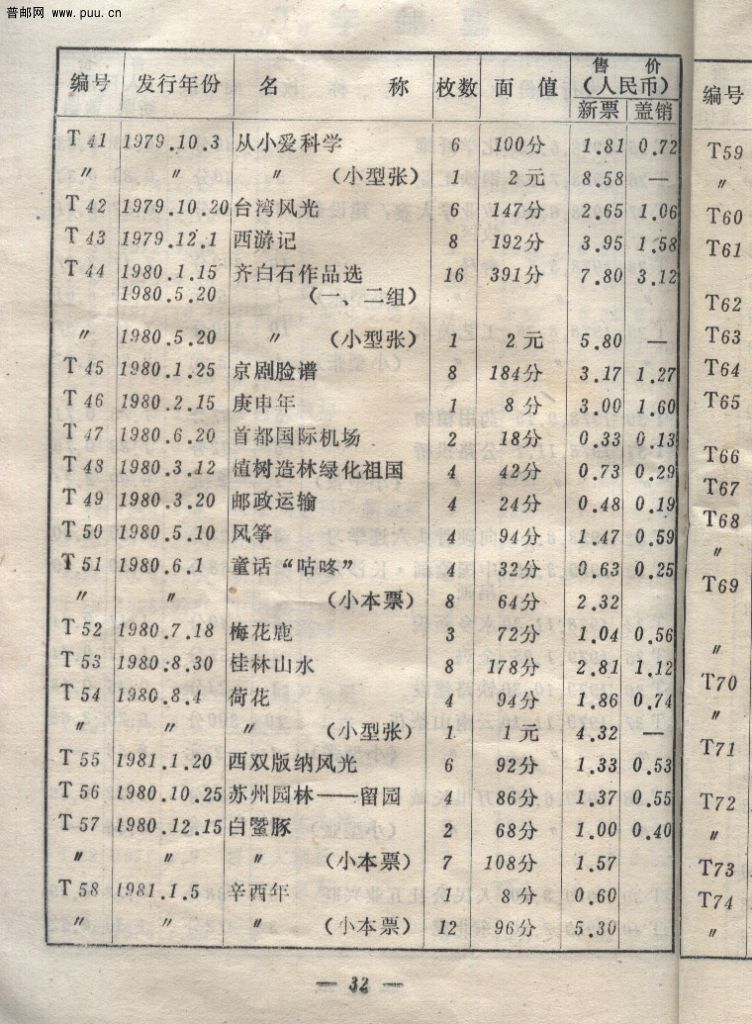 普邮网 www.puu.cn
编号 发行年份 名 称 枚数 面 值 售 价
(人民币)
新票 盖销
T 41 1979.10.3 从小爱科学 6 100分 1.81 0.72
〃 〃 〃 (小型张) 1 2 元 8.58 —
T 42 1979.10.20 台湾风光 6 147分 2.65 1.06
T 43 1979.12.1 西游记 8 192分 3.95 1.58
T 44 1980.1.15 齐白石作品选 16 391分 7.80 3.12
1980.5.20 (一、二组)
〃 1980.5.20 〃 (小型张) 1 2 元 5.80 —
T 45 1980.1.25 京剧脸谱 8 184分 3.17 1.27
T 46 1980.2.15 庚申年 1 8 分 3.00 1.60
T 47 1980.6.20 首都国际机场 2 18分 0.33 0.13
T 48 1980.3.12 植树造林绿化祖国 4 42分 0.73 0.29
T 49 1980.3.20 邮政运输 4 24分 0.48 0.19
T 50 1980.5.10 风筝 4 94分 1.47 0.59
T 51 1980.6.1 童话“咕咚” 4 32分 0.63 0.25
〃 〃 (小本票) 8 64分 2.32
T 52 1980.7.18 梅花鹿 3 72分 1.04 0.56
T 53 1980.8.30 桂林山水 8 178分 2.81 1.12
T 54 1980.8.4 荷花 4 94分 1.86 0.74
〃 〃 〃 (小型张) 1 1 元 4.32 —
T 55 1981.1.20 西双版纳风光 6 92分 1.33 0.53
T 56 1980.10.25 苏州园林——留园 4 86分 1.37 0.55
T 57 1980.12.15 白鱀豚 2 68分 1.00 0.40
〃 〃 〃 (小本票) 7 108分 1.57
T 58 1981.1.5 辛酉年 1 8分 0.60
〃 〃 〃 (小本票) 12 96分 5.30
— 32 —
编号
T59
〃
T60
T61
T62
T63
T64
T65
T66
T67
T68
〃
T69
〃
T70
〃
T71
T72
〃
T73
T74
〃